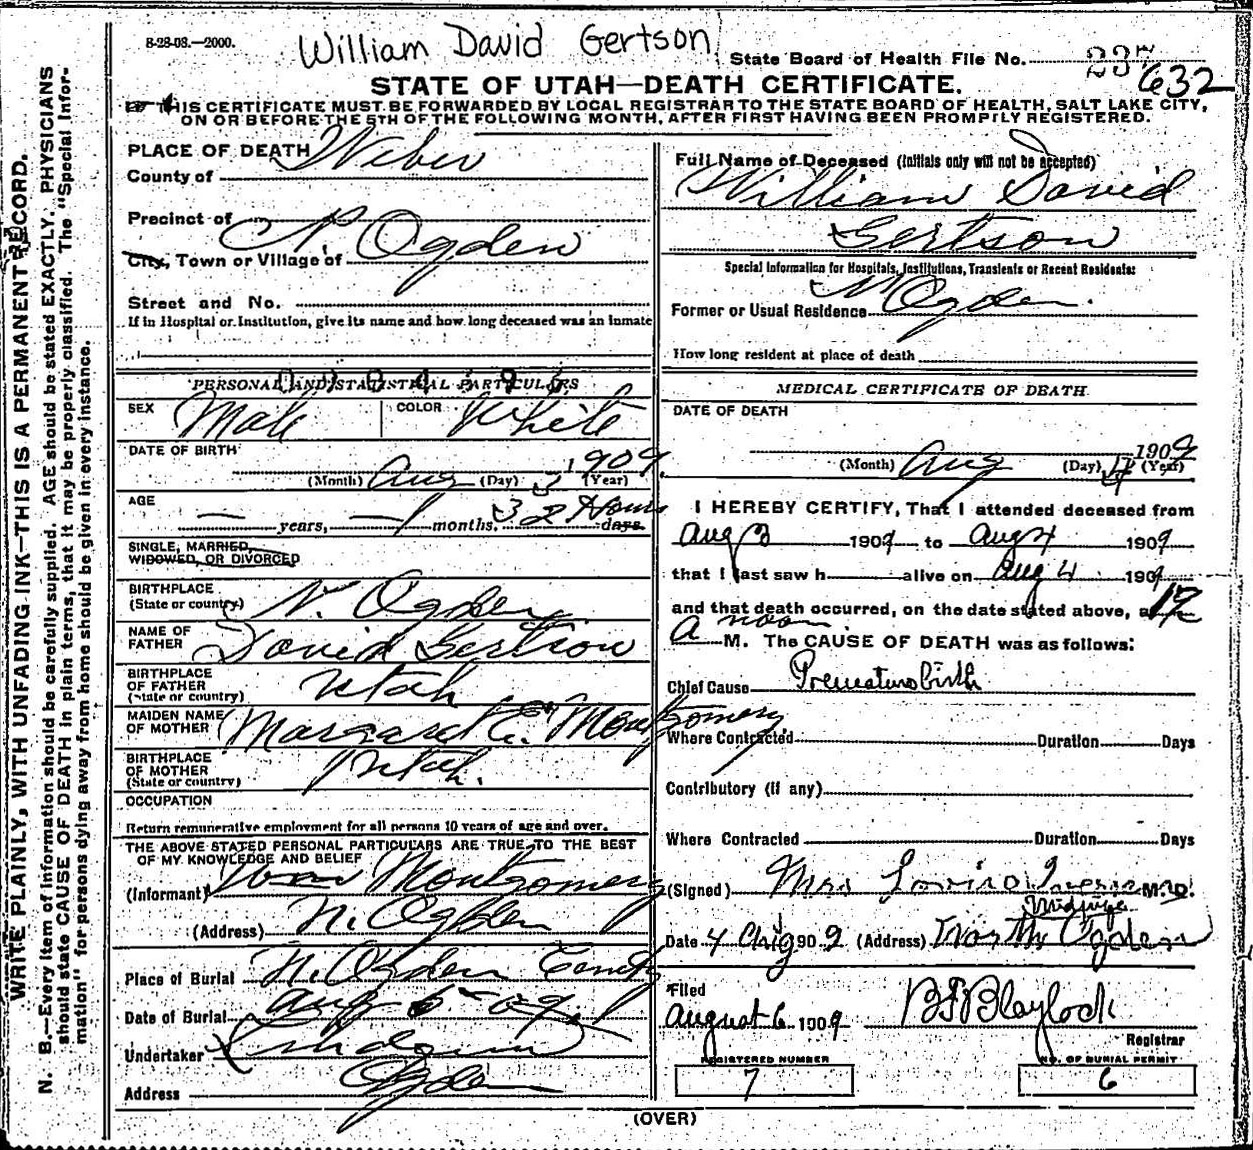 8-28-08.—2000.
William David Gertson
State Board of Health File No. 237 632
STATE OF UTAH—DEATH CERTIFICATE.
THIS CERTIFICATE MUST BE FORWARDED BY LOCAL REGISTRAR TO THE STATE BOARD OF HEALTH, SALT LAKE CITY,
ON OR BEFORE THE 5TH OF THE FOLLOWING MONTH, AFTER FIRST HAVING BEEN PROMPTLY REGISTERED.
WRITE PLAINLY, WITH UNFADING INK—THIS IS A PERMANENT RECORD.
N. B.—Every item of information should be carefully supplied. AGE should be stated EXACTLY. PHYSICIANS
should state CAUSE OF DEATH in plain terms, that it may be properly classified. The "Special Infor-
mation" for persons dying away from home should be given in every instance.
PLACE OF DEATH
County of Weber
Precinct of
City, Town or Village of N. Ogden
Street and No.
If in Hospital or Institution, give its name and how long deceased was an inmate
PERSONAL AND STATISTICAL PARTICULARS
SEX Male COLOR White
DATE OF BIRTH
(Month) Aug (Day) 3 1909 (Year)
AGE
— years, — months, 32 Hours days.
SINGLE, MARRIED,
WIDOWED, OR DIVORCED
BIRTHPLACE
(State or country) N. Ogden
NAME OF
FATHER David Gertson
BIRTHPLACE
OF FATHER
(State or country) Utah
MAIDEN NAME
OF MOTHER Margaret E. Montgomery
BIRTHPLACE
OF MOTHER
(State or country) Utah.
OCCUPATION
Return remunerative employment for all persons 10 years of age and over.
THE ABOVE STATED PERSONAL PARTICULARS ARE TRUE TO THE BEST
OF MY KNOWLEDGE AND BELIEF
(Informant) Wm Montgomery
(Address) N. Ogden
Place of Burial N. Ogden Cemty
Date of Burial Aug 5 - 09
Undertaker
Address Ogden
Full Name of Deceased (Initials only will not be accepted)
William David
Gertson
Special Information for Hospitals, Institutions, Transients or Recent Residents:
Former or Usual Residence N Ogden.
How long resident at place of death
MEDICAL CERTIFICATE OF DEATH
DATE OF DEATH
(Month) Aug (Day) 4 1909 (Year)
I HEREBY CERTIFY, That I attended deceased from
Aug 3 1909 to Aug 4 1909
that I last saw h alive on Aug 4 1909
and that death occurred, on the date stated above, at 12
A noon M. The CAUSE OF DEATH was as follows:
Chief Cause Premature birth
Where Contracted Duration Days
Contributory (if any)
Where Contracted Duration Days
(Signed) Mrs M. D.
Midwife
Date 4 Aug 1909 (Address) North Ogden
Filed
August 6 1909 B F Blaylock
Registrar
REGISTERED NUMBER
7
NO. OF BURIAL PERMIT
6
(OVER)